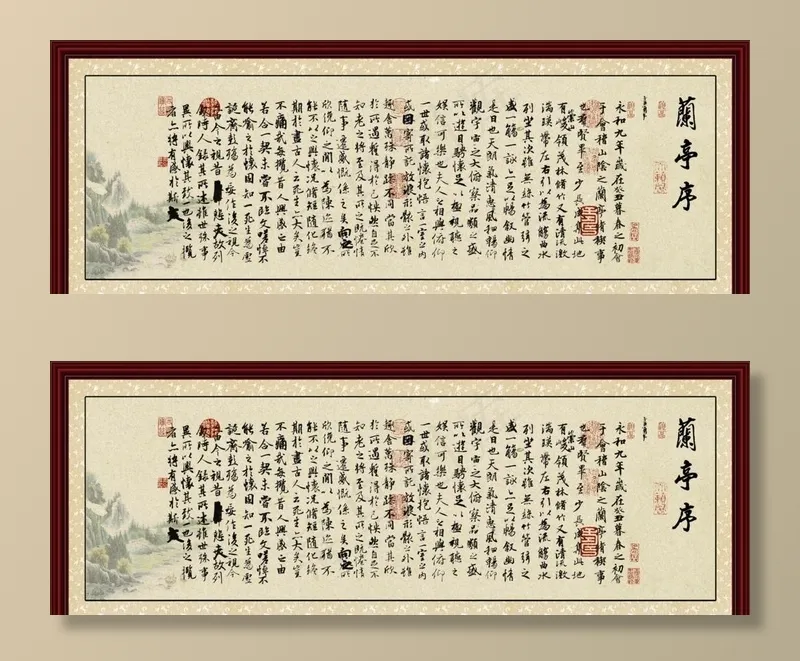 蘭亭序
永和九年歲在癸丑暮春之初會
于會稽山陰之蘭亭脩稧事
也群賢畢至少長咸集此地
有崇山峻領茂林脩竹又有清流激
湍暎帶左右引以為流觴曲水
列坐其次雖無絲竹管弦之
盛一觴一詠亦足以暢敘幽情
是日也天朗氣清惠風和暢仰
觀宇宙之大俯察品類之盛
所以遊目騁懷足以極視聽之
娛信可樂也夫人之相與俯仰
一世或取諸懷抱悟言一室之內
或因寄所託放浪形骸之外雖
趣舍萬殊靜躁不同當其欣
於所遇蹔得於己怏然自足不
知老之將至及其所之既惓情
隨事遷感慨係之矣向之所
欣俛仰之閒以為陳迹猶不
能不以之興懷況脩短隨化終
期於盡古人云死生亦大矣豈
不痛哉每攬昔人興感之由
若合一契未嘗不臨文嗟悼不
能喻之於懷固知一死生為虛
誕齊彭殤為妄作後之視今
亦由今之視昔悲夫故列
敘時人錄其所述雖世殊事
異所以興懷其致一也後之攬
者亦將有感於斯文
蘭亭序
永和九年歲在癸丑暮春之初會
于會稽山陰之蘭亭脩稧事
也群賢畢至少長咸集此地
有崇山峻領茂林脩竹又有清流激
湍暎帶左右引以為流觴曲水
列坐其次雖無絲竹管弦之
盛一觴一詠亦足以暢敘幽情
是日也天朗氣清惠風和暢仰
觀宇宙之大俯察品類之盛
所以遊目騁懷足以極視聽之
娛信可樂也夫人之相與俯仰
一世或取諸懷抱悟言一室之內
或因寄所託放浪形骸之外雖
趣舍萬殊靜躁不同當其欣
於所遇蹔得於己怏然自足不
知老之將至及其所之既惓情
隨事遷感慨係之矣向之所
欣俛仰之閒以為陳迹猶不
能不以之興懷況脩短隨化終
期於盡古人云死生亦大矣豈
不痛哉每攬昔人興感之由
若合一契未嘗不臨文嗟悼不
能喻之於懷固知一死生為虛
誕齊彭殤為妄作後之視今
亦由今之視昔悲夫故列
敘時人錄其所述雖世殊事
異所以興懷其致一也後之攬
者亦將有感於斯文